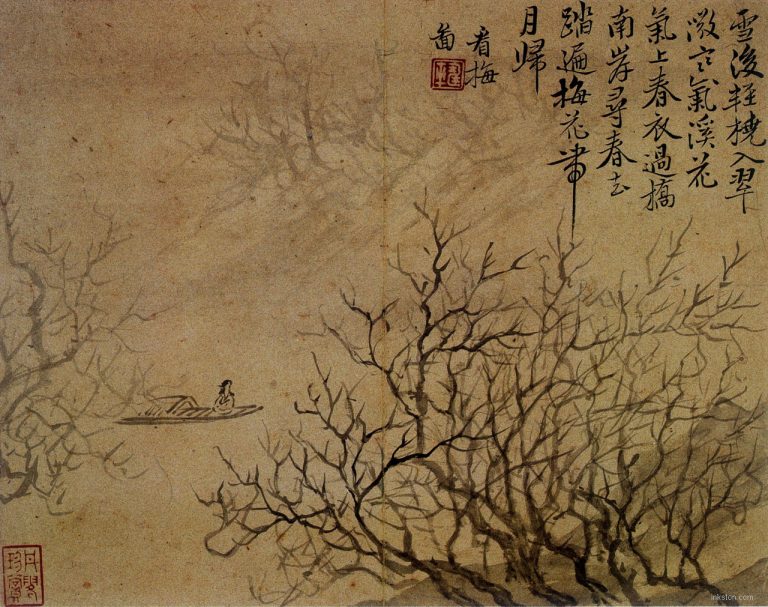 雪後輕橈入翠
微氣溪花
氣上春衣過橋
南岸尋春去
踏遍梅花帶
月歸
看梅
啚
inkston.com